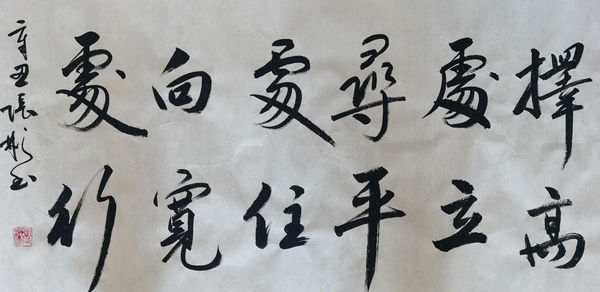 擇高
處立
尋平
處住
向寬
處行
辛丑張彬書